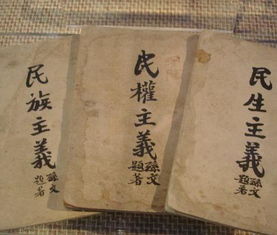 民族主義
孫文題著
民權主義
孫文題著
民生主義
孫文題著